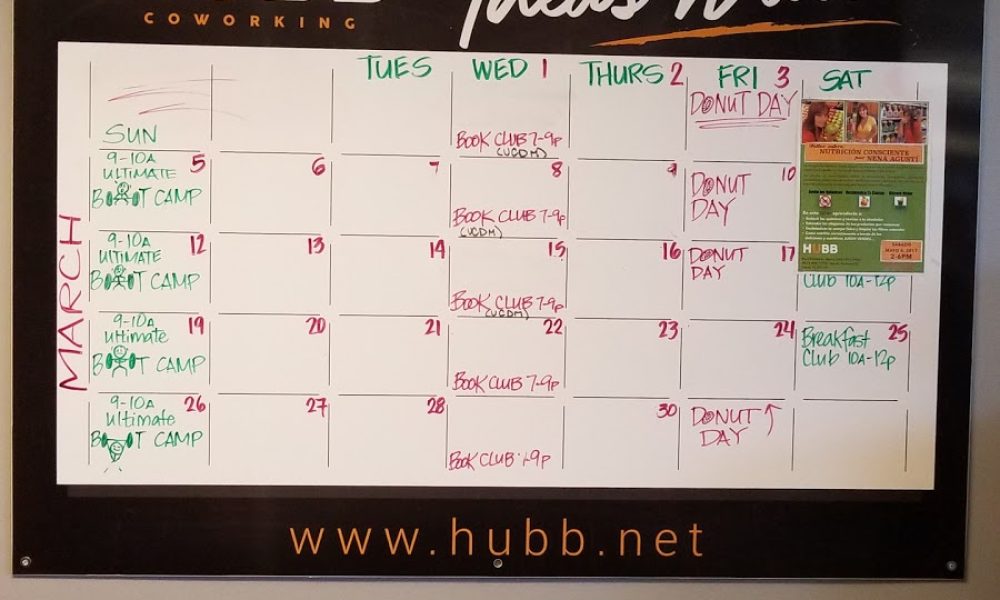 COWORKING
TUES WED 1 THURS 2 FRI 3 SAT
DONUT DAY
SUN
BOOK CLUB 7-9p
(UCDM)
9-10A 5 6 7 8 9 10
ULTIMATE
BOOT CAMP
DONUT
DAY
BOOK CLUB 7-9p
(UCDM)
NUTRICIÓN CONSCIENTE
por NENA AGUSTÍ
HUBB
SÁBADO
MAYO 6, 2017
2-6PM
MARCH
9-10A 12 13 14 15 16 17
ULTIMATE
BOOT CAMP
DONUT
DAY
BOOK CLUB 7-9p
(UCDM)
CLUB 10A-12p
9-10A 19 20 21 22 23 24 25
Ultimate
BOOT CAMP
BOOK CLUB 7-9p
Breakfast
Club 10A-12p
9-10A 26 27 28 30
Ultimate
BOOT CAMP
BOOK CLUB 7-9p
DONUT
DAY
www.hubb.net